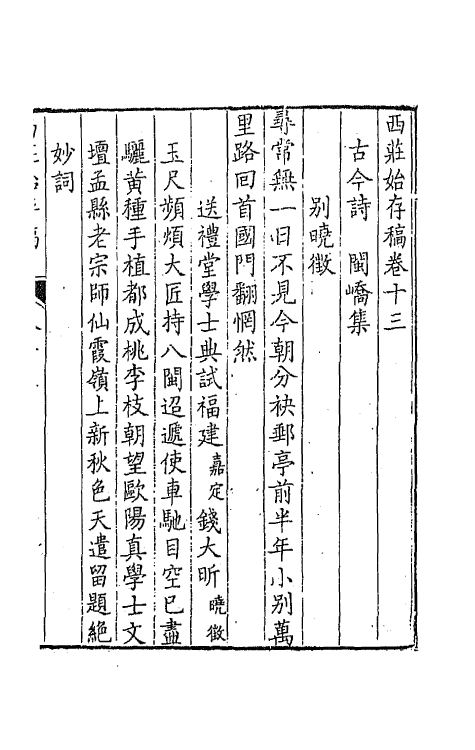 西莊始存稿卷十三
古今詩　閩嶠集
別曉徵
尋常無一日不見今朝分袂郵亭前半年小別萬
里路回首國門翻惘然
送禮堂學士典試福建嘉定錢大昕曉徵
玉尺頻煩大匠持八閩迢遞使車馳目空已盡
驪黃種手植都成桃李枝朝望歐陽真學士文
壇孟縣老宗師仙霞嶺上新秋色天遣留題絕
妙詞